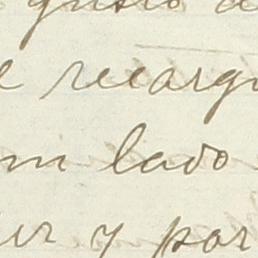 gusto a
e recarg
m lado
ir y por